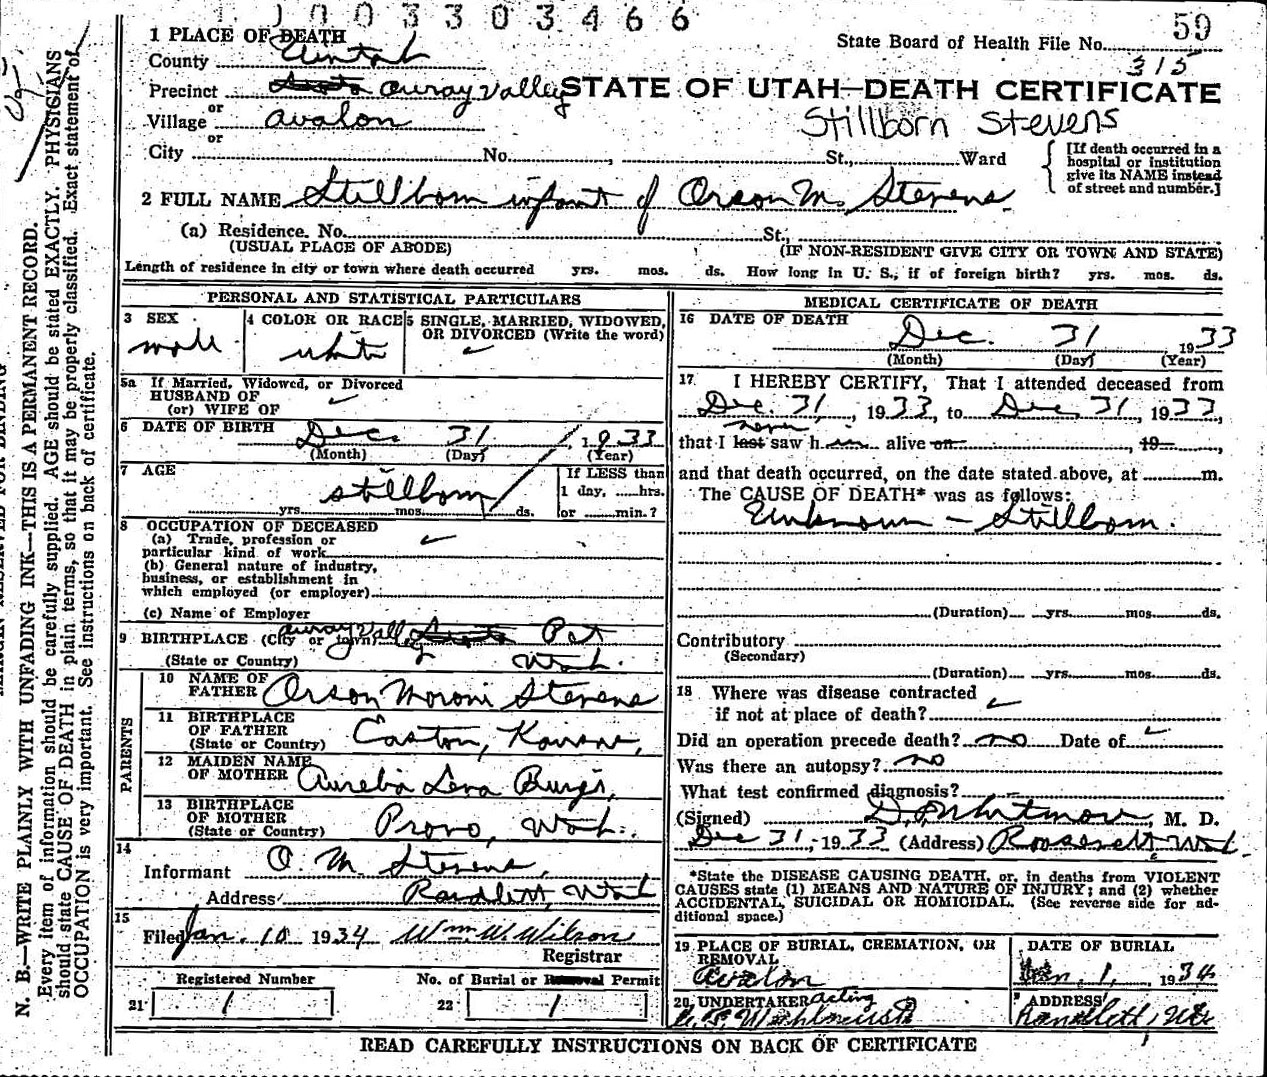 1003303466
59
1 PLACE OF DEATH
State Board of Health File No.
315
County Uintah
Precinct Ouray Valley
STATE OF UTAH—DEATH CERTIFICATE
or
Village Avalon
Stillborn Stevens
or
City No. , St., Ward
[If death occurred in a hospital or institution give its NAME instead of street and number.]
2 FULL NAME Stillborn infant of Orson M. Stevens.
(a) Residence. No. St.,
(USUAL PLACE OF ABODE) (IF NON-RESIDENT GIVE CITY OR TOWN AND STATE)
Length of residence in city or town where death occurred yrs. mos. ds. How long in U. S., if of foreign birth? yrs. mos. ds.
PERSONAL AND STATISTICAL PARTICULARS
3 SEX
male
4 COLOR OR RACE
white
5 SINGLE, MARRIED, WIDOWED, OR DIVORCED (Write the word)
5a If Married, Widowed, or Divorced
HUSBAND OF
(or) WIFE OF
6 DATE OF BIRTH Dec. 31 1933
(Month) (Day) (Year)
7 AGE
stillborn
yrs. mos. ds.
If LESS than
1 day, hrs.
or min.?
8 OCCUPATION OF DECEASED
(a) Trade, profession or
particular kind of work
(b) General nature of industry,
business, or establishment in
which employed (or employer)
(c) Name of Employer
9 BIRTHPLACE (City or town) Ouray Valley
(State or Country) Utah.
PARENTS
10 NAME OF FATHER Orson Moroni Stevens
11 BIRTHPLACE OF FATHER (State or Country) Easton, Kansas,
12 MAIDEN NAME OF MOTHER
13 BIRTHPLACE OF MOTHER (State or Country) Provo, Utah.
14
Informant O. M. Stevens,
Address Randlett, Utah
15
Filed Jan. 10 1934 Wm. W. Wilson
Registrar
Registered Number No. of Burial or Removal Permit
21 1 22 1
MEDICAL CERTIFICATE OF DEATH
16 DATE OF DEATH
Dec. 31 1933
(Month) (Day) (Year)
17 I HEREBY CERTIFY, That I attended deceased from
Dec. 31, 1933, to Dec. 31, 1933,
never
that I last saw h im alive on , 19
and that death occurred, on the date stated above, at m.
The CAUSE OF DEATH* was as follows:
Unknown - Stillborn.
(Duration) yrs. mos. ds.
Contributory
(Secondary)
(Duration) yrs. mos. ds.
18 Where was disease contracted
if not at place of death?
Did an operation precede death? no Date of
Was there an autopsy? no
What test confirmed diagnosis?
(Signed) , M. D.
Dec 31, 1933 (Address) Roosevelt, Utah.
*State the DISEASE CAUSING DEATH, or, in deaths from VIOLENT
CAUSES state (1) MEANS AND NATURE OF INJURY; and (2) whether
ACCIDENTAL, SUICIDAL OR HOMICIDAL. (See reverse side for ad-
ditional space.)
19 PLACE OF BURIAL, CREMATION, OR REMOVAL
Avalon
DATE OF BURIAL
Jan. 1, 1934
20 UNDERTAKER Acting
ADDRESS
Randlett, Ute
READ CAREFULLY INSTRUCTIONS ON BACK OF CERTIFICATE
MARGIN RESERVED FOR BINDING
N. B.—WRITE PLAINLY WITH UNFADING INK—THIS IS A PERMANENT RECORD.
Every item of information should be carefully supplied. AGE should be stated EXACTLY. PHYSICIANS
should state CAUSE OF DEATH in plain terms, so that it may be properly classified. Exact statement of
OCCUPATION is very important. See instructions on back of certificate.